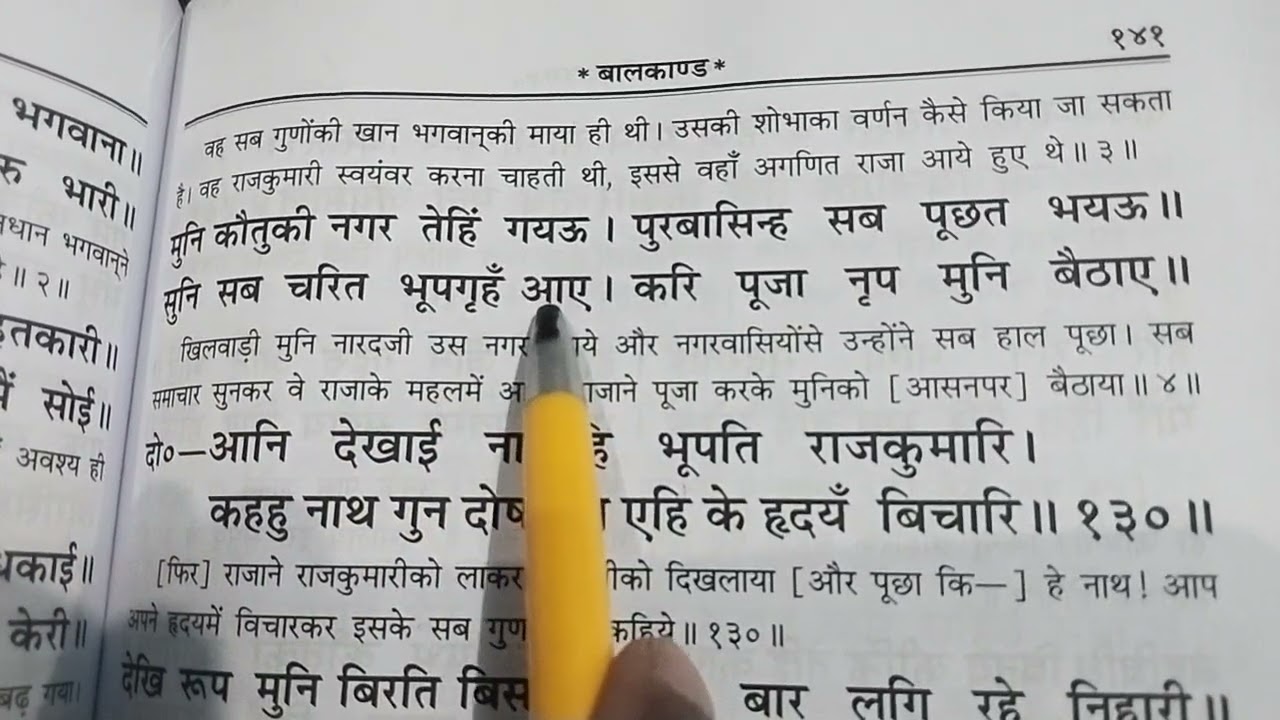 १४१
* बालकाण्ड *
वह सब गुणोंकी खान भगवान्‌की माया ही थी। उसकी शोभाका वर्णन कैसे किया जा सकता
है। वह राजकुमारी स्वयंवर करना चाहती थी, इससे वहाँ अगणित राजा आये हुए थे॥ ३॥
मुनि कौतुकी नगर तेहिं गयऊ। पुरबासिन्ह सब पूछत भयऊ॥
सुनि सब चरित भूपगृहँ आए। करि पूजा नृप मुनि बैठाए॥
खिलवाड़ी मुनि नारदजी उस नगर ये और नगरवासियोंसे उन्होंने सब हाल पूछा। सब
समाचार सुनकर वे राजाके महलमें जाने पूजा करके मुनिको [आसनपर] बैठाया॥ ४॥
दो०—आनि देखाई भूपति राजकुमारि।
कहहु नाथ गुन दोष एहि के हृदयँ बिचारि॥ १३०॥
[फिर] राजाने राजकुमारीको लाकर को दिखलाया [और पूछा कि—] हे नाथ! आप
अपने हृदयमें विचारकर इसके सब गुण कहिये॥ १३०॥
देखि रूप मुनि बिरति बार लगि रहे निहारी॥
भगवाना॥
भारी॥
भगवान्‌ने
॥ २॥
सोई॥
अवश्य ही
केरी॥
बढ़ गया।